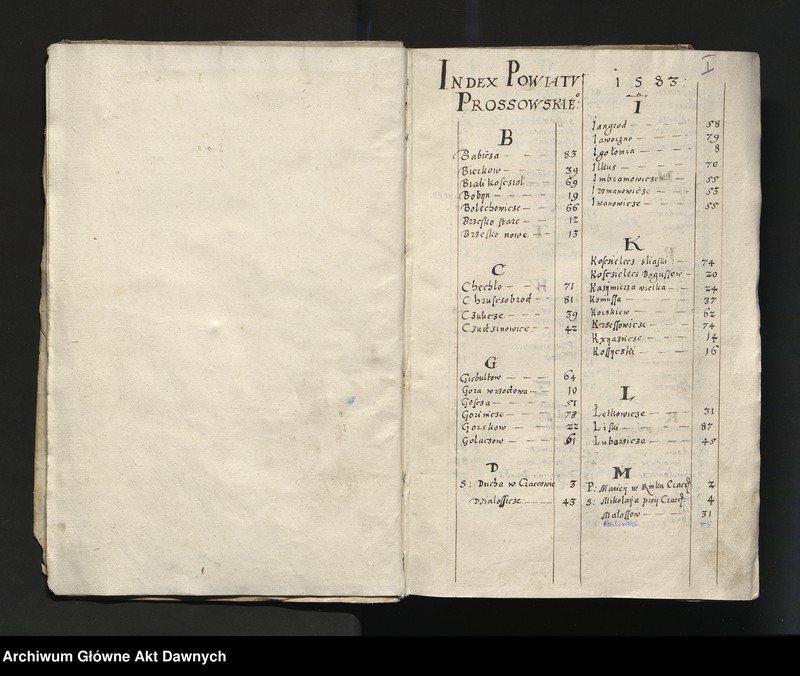 INDEX POWIATU 1583.
PROSSOWSKIE°:
I
B
Babicza 83
Bierkow 39
Biali kosczioł 69
Bobyn 19
Bolechowicze 66
Brzesko stare 12
Brzesko nowe 13
C
Chechło 71
Chrusczobrod 81
Czulicze 39
Czudzinowice 42
G
Giebultow 64
Gora wrzoczowa 10
Goscza 51
Gorincze 73
Gorskow 22
Golaczow 61
D
S: Ducha w Czarcowie 3
Działossicze 43
I
Iangrod 58
Iaworzno 79
Igołomia 8
Ilkus 70
Imbramowicze 55
Irzmanowicze 53
Iwanowicze 55
K
Kosczielecz sliaski: 74
Kosczielecz Bogussow 20
Kazymirza wielka 24
Komussa 37
Korzkiew 62
Krzessowicze 74
Kxyaznicze 14
Kossyczki 16
L
Lelkowicze 31
Liski 87
Luborzicza 45
M
P: Mariey w Rynku 2
S: Mikołaja przy 4
Małossow 31
85
Archiwum Główne Akt Dawnych